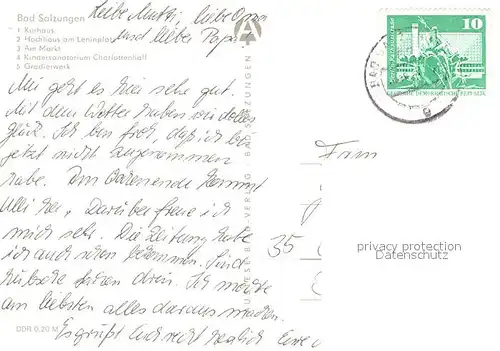 Bad Salzungen
1 Kurhaus
2 Hochhaus am Leninplatz
3 Am Markt
4 Kursanatorium Charlottenhall
5 Gradierwerk
Liebe Mutti, liebe Omi
und lieber Papa
Mir geht es hier sehr gut.
Mit dem Wetter haben wir tolles
Glück. Ich bin froh, daß ich bis
jetzt nicht zugenommen
habe. Am Wochenende kommt
Ulli her, Darüber freue ich
mich sehr. Die Zeitung habe
ich auch schon bekommen. Sind
hübsche Sachen drin. Ich möchte
am liebsten alles daraus machen.
Es grüßt Euch recht herzlich Eure
DDR 0,20 M
VERLAG BAD SALZUNGEN
10
DEUTSCHE DEMOKRATISCHE REPUBLIK
BAD
Frau
35
privacy protection
Datenschutz